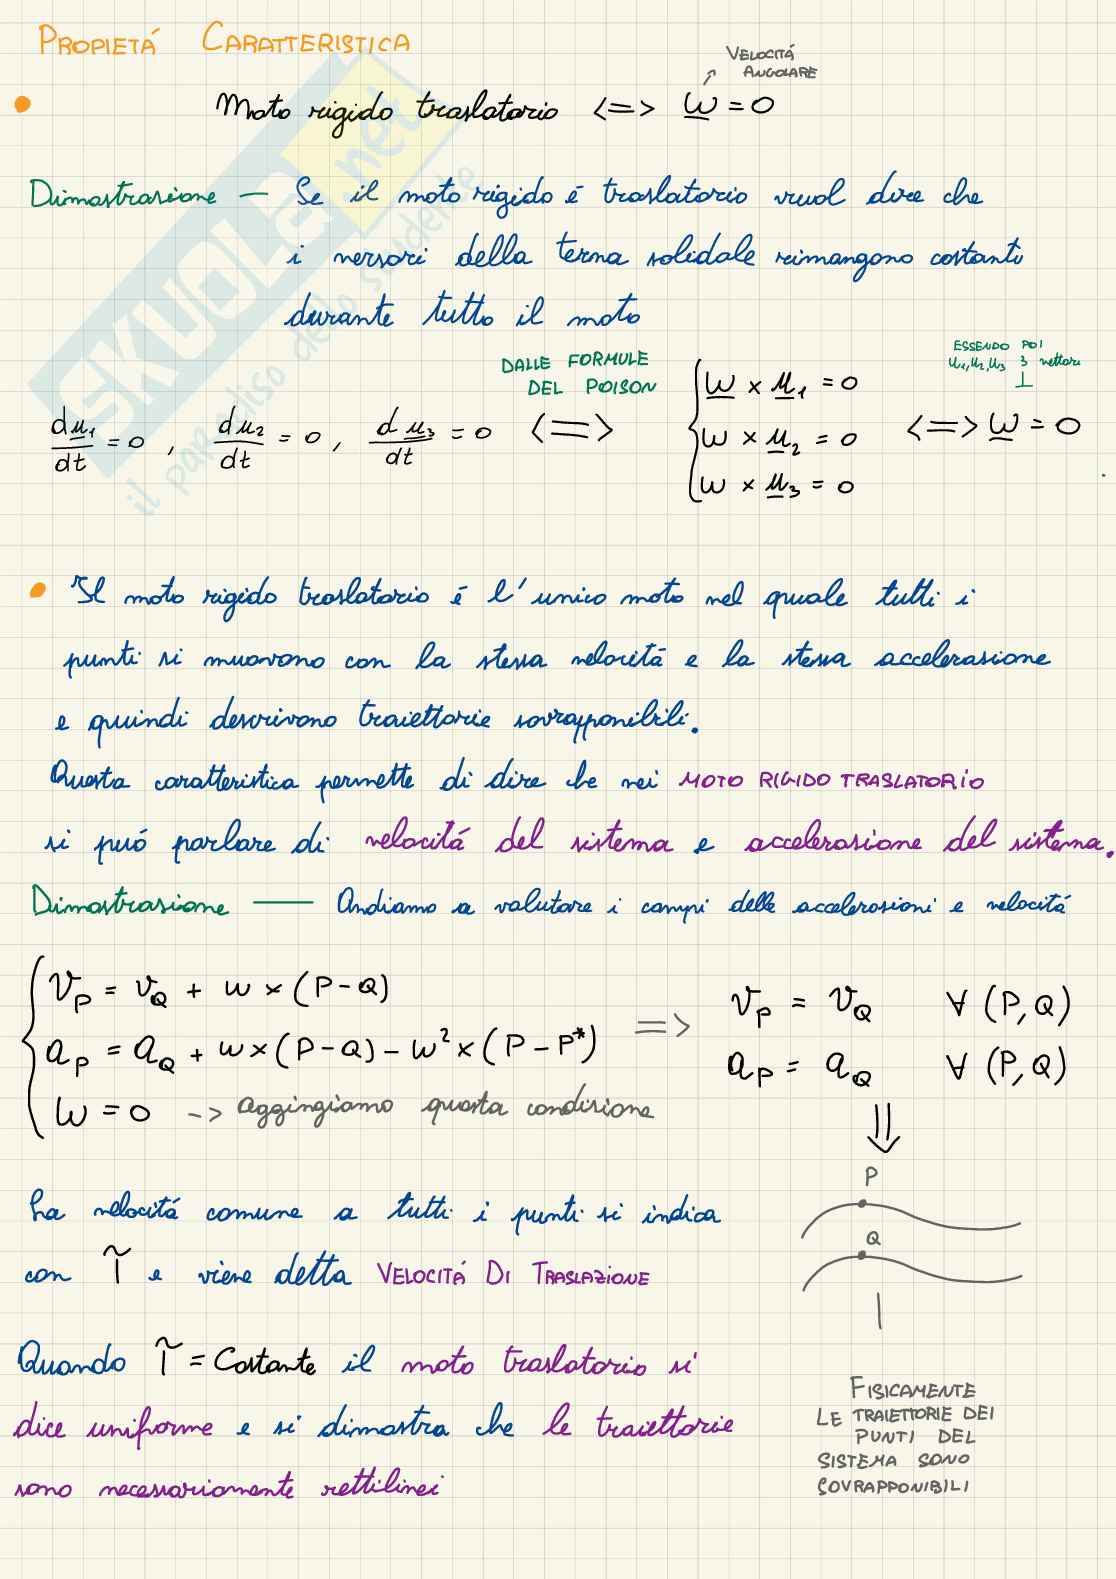 PROPIETÁ CARATTERISTICA
VELOCITÁ
ANGOLARE
• Moto rigido traslatorio <=> ω = 0
Dimostrazione — Se il moto rigido é traslatorio vuol dire che
i versori della terna solidale rimangono costanti
durante tutto il moto
du1/dt = 0 , du2/dt = 0 , du3/dt = 0
DALLE FORMULE
DEL POISON
<=>
ω x u1 = 0
ω x u2 = 0
ω x u3 = 0
ESSENDO POI
u1,u2,u3 3 vettori
⊥
<=> ω = 0
• Il moto rigido traslatorio é l'unico moto nel quale tutti i
punti si muovono con la stessa velocitá e la stessa accelerazione
e quindi descrivono traiettorie sovrapponibili.
Questa caratteristica permette di dire che nei MOTO RIGIDO TRASLATORIO
si puó parlare di velocitá del sistema e accelerazione del sistema.
Dimostrazione — Andiamo a valutare i campi delle accelerazioni e velocitá
vP = vQ + ω x (P-Q)
aP = aQ + ω x (P-Q) - ω² x (P - P*)
ω = 0 -> aggingiamo questa condizione
=>
vP = vQ ∀ (P,Q)
aP = aQ ∀ (P,Q)
⇓
P
Q
La velocitá comune a tutti i punti si indica
con τ e viene detta VELOCITÁ DI TRASLAZIONE
Quando τ = Costante il moto traslatorio si
dice uniforme e si dimostra che le traiettorie
sono necessariamente rettilinei
FISICAMENTE
LE TRAIETTORIE DEI
PUNTI DEL
SISTEMA SONO
SOVRAPPONIBILI
SKUOLA.net
il paradiso dello studente